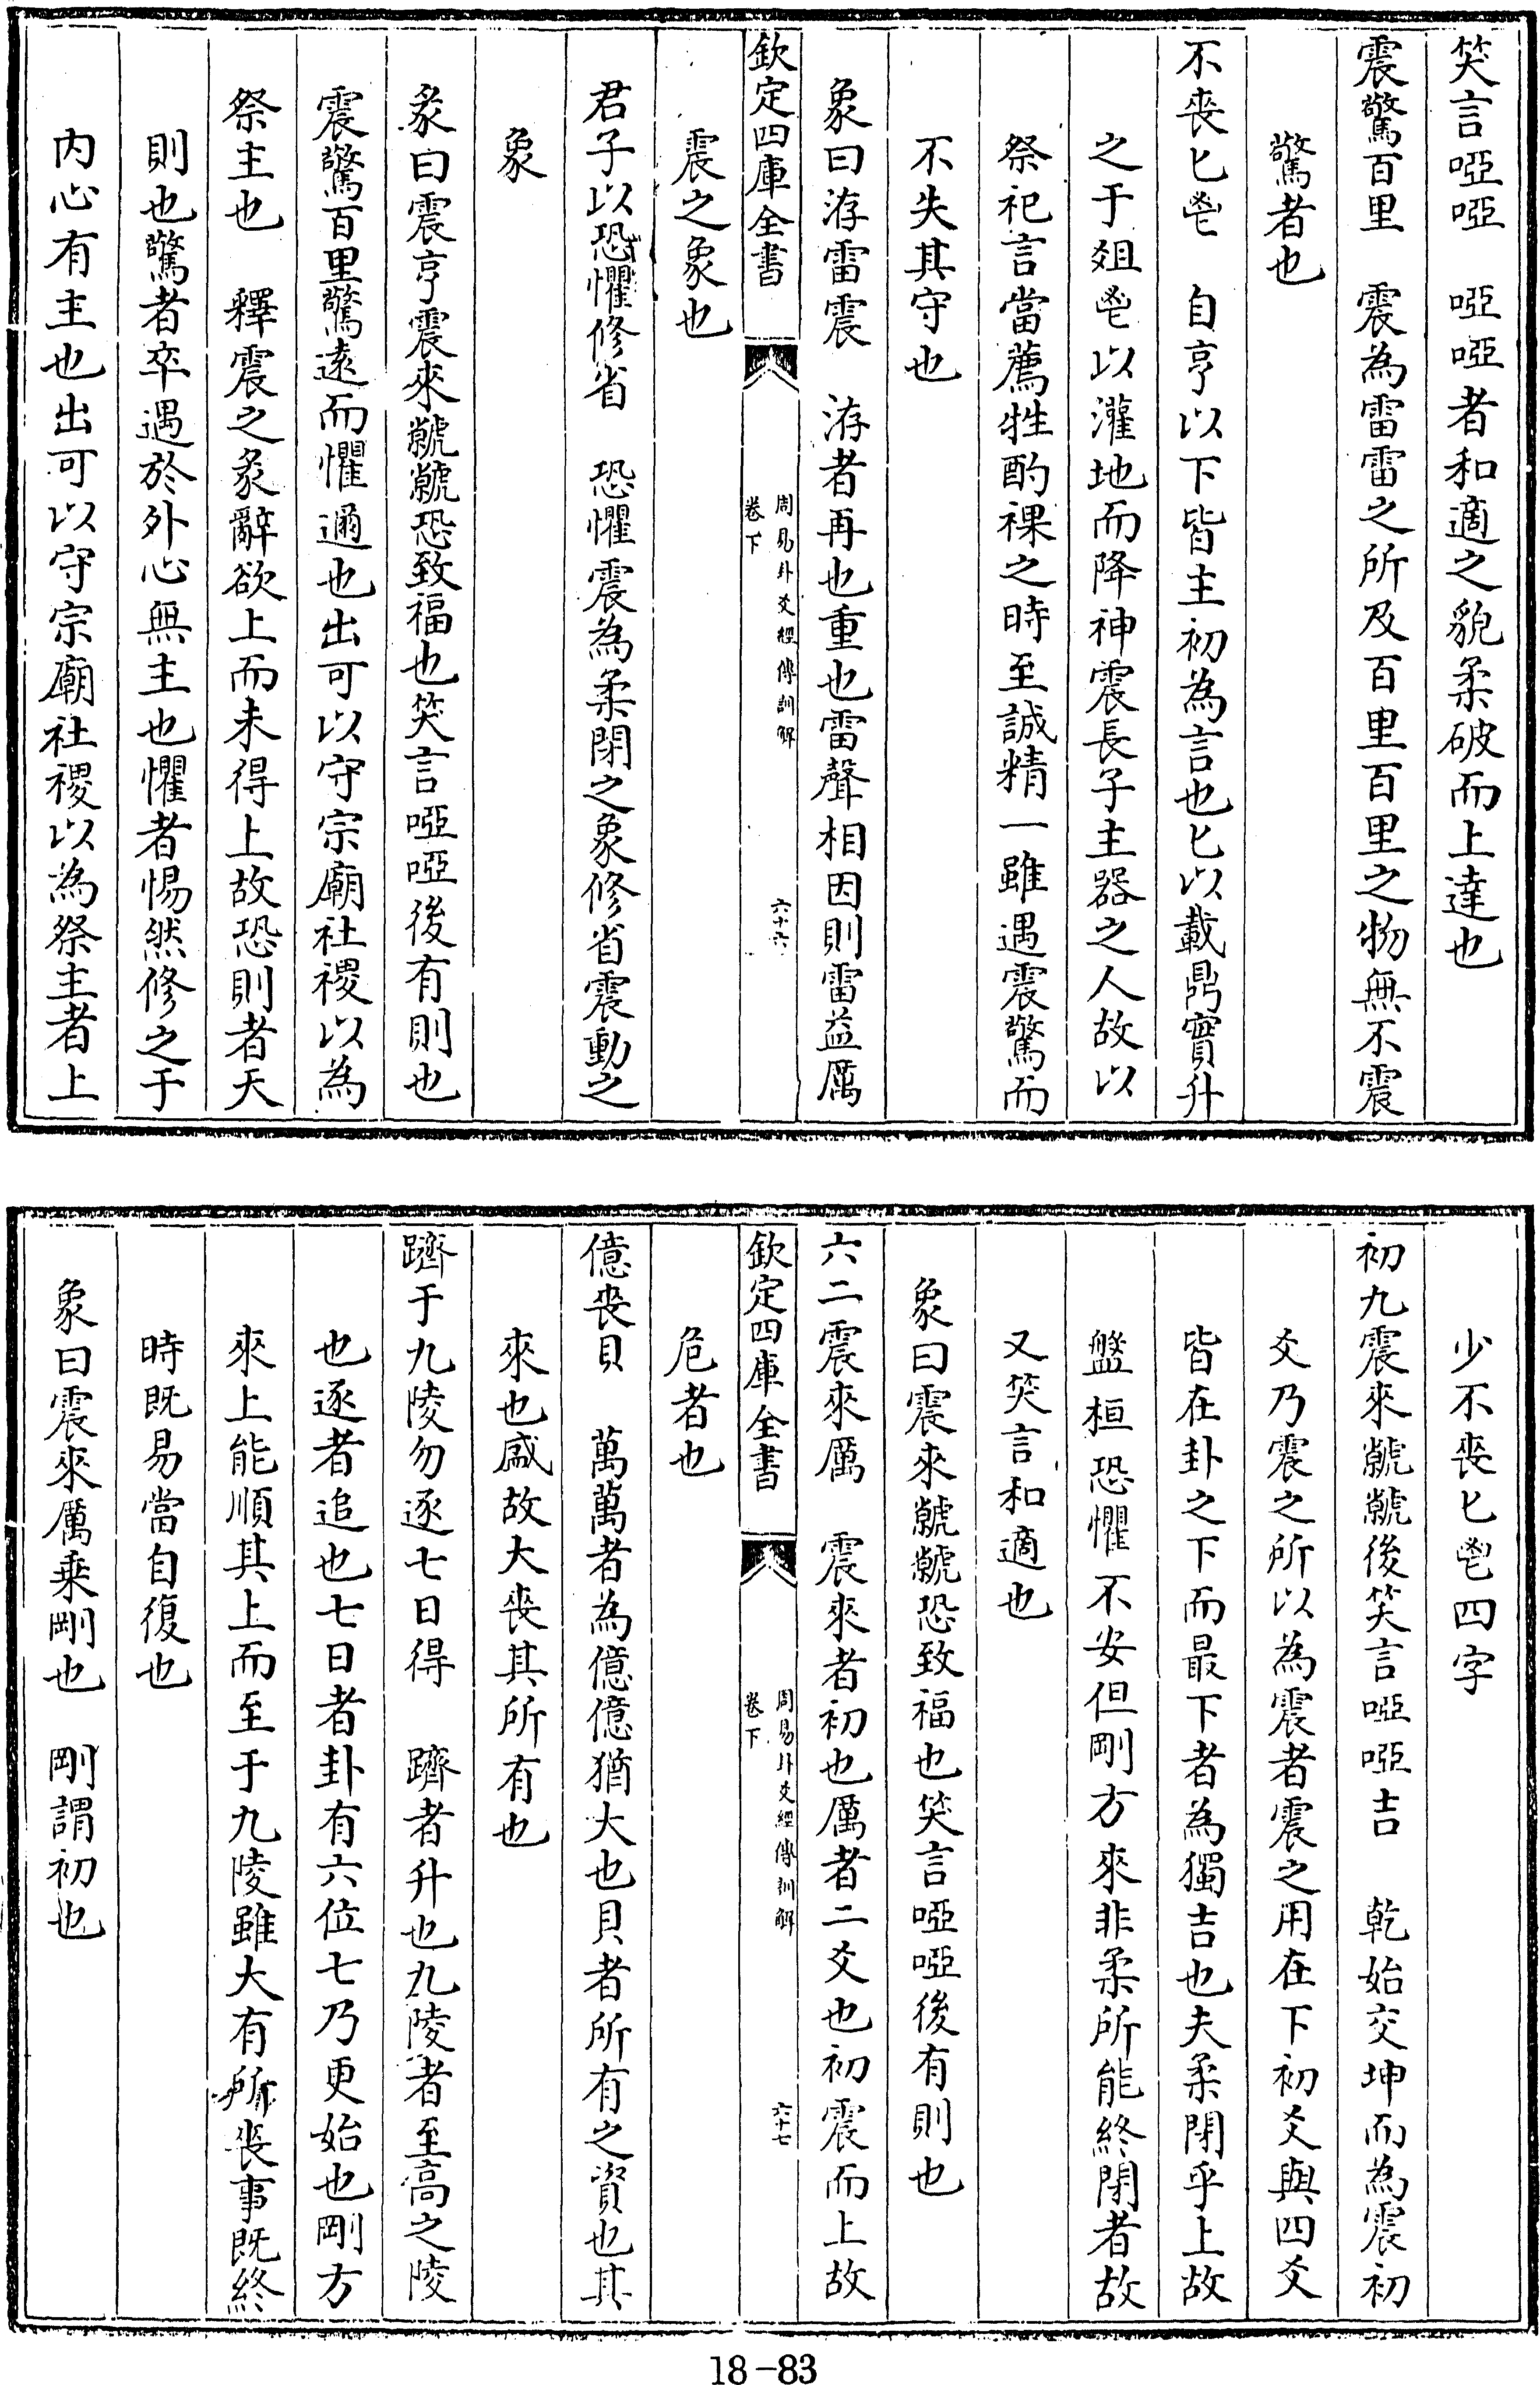 笑言啞啞　啞啞者和適之貌柔破而上達也
震驚百里　震為雷雷之所及百里百里之物無不震
驚者也
不喪匕鬯　自亨以下皆主初為言也匕以載鼎實升
之于爼鬯以灌地而降神震長子主器之人故以
祭祀言當薦牲酌祼之時至誠精一雖遇震驚而
不失其守也
象曰洊雷震　洊者再也重也雷聲相因則雷益厲
欽定四庫全書
周易卦爻經傳訓解
卷下
六十六
震之象也
君子以恐懼修省　恐懼震為柔閉之象修省震動之
象
彖曰震亨震來虩虩恐致福也笑言啞啞後有則也
震驚百里驚逺而懼邇也出可以守宗廟社稷以為
祭主也　釋震之彖辭欲上而未得上故恐則者天
則也驚者卒遇於外心無主也懼者惕然修之于
内心有主也出可以守宗廟社稷以為祭主者上
少不喪匕鬯四字
初九震來虩虩後笑言啞啞吉　乾始交坤而為震初
爻乃震之所以為震者震之用在下初爻與四爻
皆在卦之下而最下者為獨吉也夫柔閉乎上故
盤桓恐懼不安但剛方來非柔所能終閉者故
又笑言和適也
象曰震來虩虩恐致福也笑言啞啞後有則也
六二震來厲　震來者初也厲者二爻也初震而上故
欽定四庫全書
周易卦爻經傳訓解
卷下
六十七
危者也
億喪貝　萬萬者為億億猶大也貝者所有之資也其
來也威故大喪其所有也
躋于九陵勿逐七日得　躋者升也九陵者至高之陵
也逐者追也七日者卦有六位七乃更始也剛方
來上能順其上而至于九陵雖大有所喪事既終
時既易當自復也
象曰震來厲乗剛也　剛謂初也
18-83